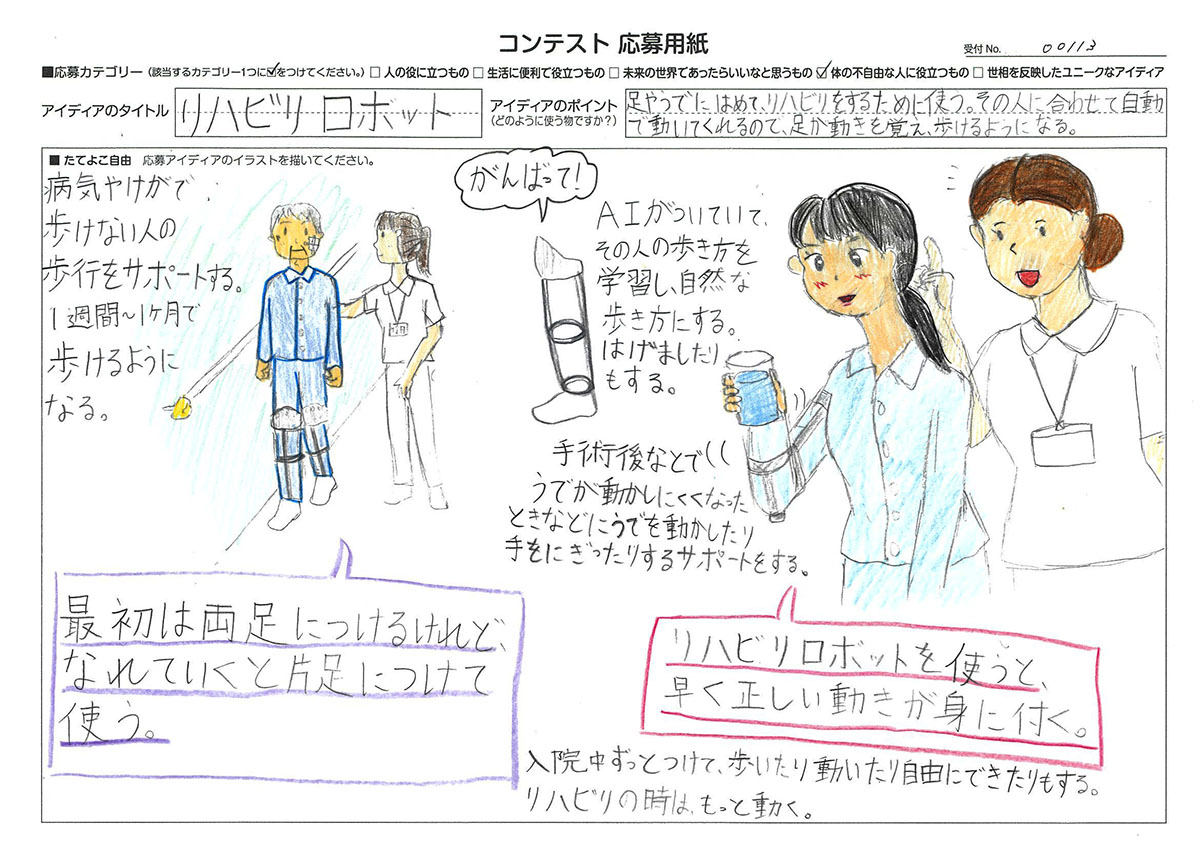 コンテスト 応募用紙
受付 No. 00113
■応募カテゴリー（該当するカテゴリー1つに☑をつけてください。）□ 人の役に立つもの □ 生活に便利で役立つもの □ 未来の世界であったらいいなと思うもの ☑ 体の不自由な人に役立つもの □ 世相を反映したユニークなアイディア
アイディアのタイトル リハビリロボット
アイディアのポイント
（どのように使う物ですか？）
足やうでに、はめて、リハビリをするために使う。その人に合わせて自動
で動いてくれるので、足が動きを覚え、歩けるようになる。
■ たてよこ自由 応募アイディアのイラストを描いてください。
病気やけがで
歩けない人の
歩行をサポートする。
1週間〜1ヶ月で
歩けるように
なる。
がんばって!
AIがついていて、
その人の歩き方を
学習し、自然な
歩き方にする。
はげましたり
もする。
手術後などで
うでが動かしにくくなった
ときなどにうでを動かしたり
手をにぎったりするサポートをする。
最初は両足につけるけれど、
なれていくと片足につけて
使う。
リハビリロボットを使うと、
早く正しい動きが身に付く。
入院中ずっとつけて、歩いたり動いたり自由にできたりもする。
リハビリの時は、もっと動く。